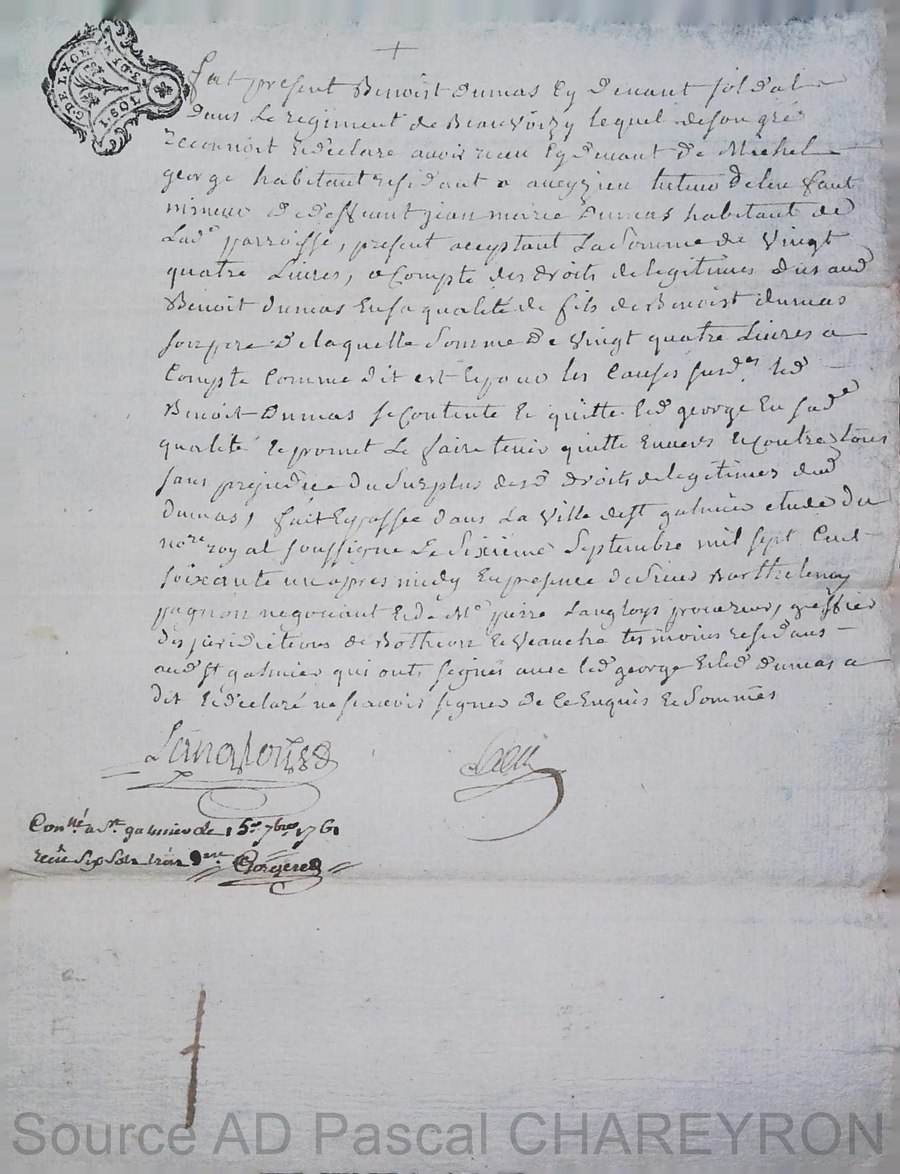 G. DE LYON
1 SOL
Fut present Benoist Dumas Cy devant soldat
Dans Le regiment de Beauvoizy lequel de son gré
reconnoit & declare avoir receu Cy devant de Michel
george habitant residant a aveyzieu tuteur de
mineur De deffunt jean marie Dumas habitant de
Lad.e parroisse, present acceptant La Somme de Vingt
quatre Livres, a Compte des droits de legitimes dus aud
Benoit Dumas En sa qualité de fils de Benoist dumas
son pere De laquelle Somme De Vingt quatre Livres a
Compte Comme dit est & pour les Causes susd.es led
Benoit Dumas se Contente & quitte led george En sad.e
qualité & promet Le faire tenir quitte Envers & Contre tous
sans prejudice du Surplus desd droits de legitimes dud
Dumas, fait & passé dans La Ville de st galmier etude du
no.re royal soussigné Le Sixiéme Septembre mil sept Cent
soixante un apres midy En presence de Sieur Barthelemy
pagnon negociant & de M.e pierre Langloys procureur, greffier
des juridictions de Bothéon & Veauche temoins residans
aud st galmier qui ont signés avec led george & led dumas a
dit & declaré ne scavoir signer de Ce Enquis & Sommés
Langloys
Con.llé a St galmier le 15.e 7bre 1761
receu Six Sols trois d.ers